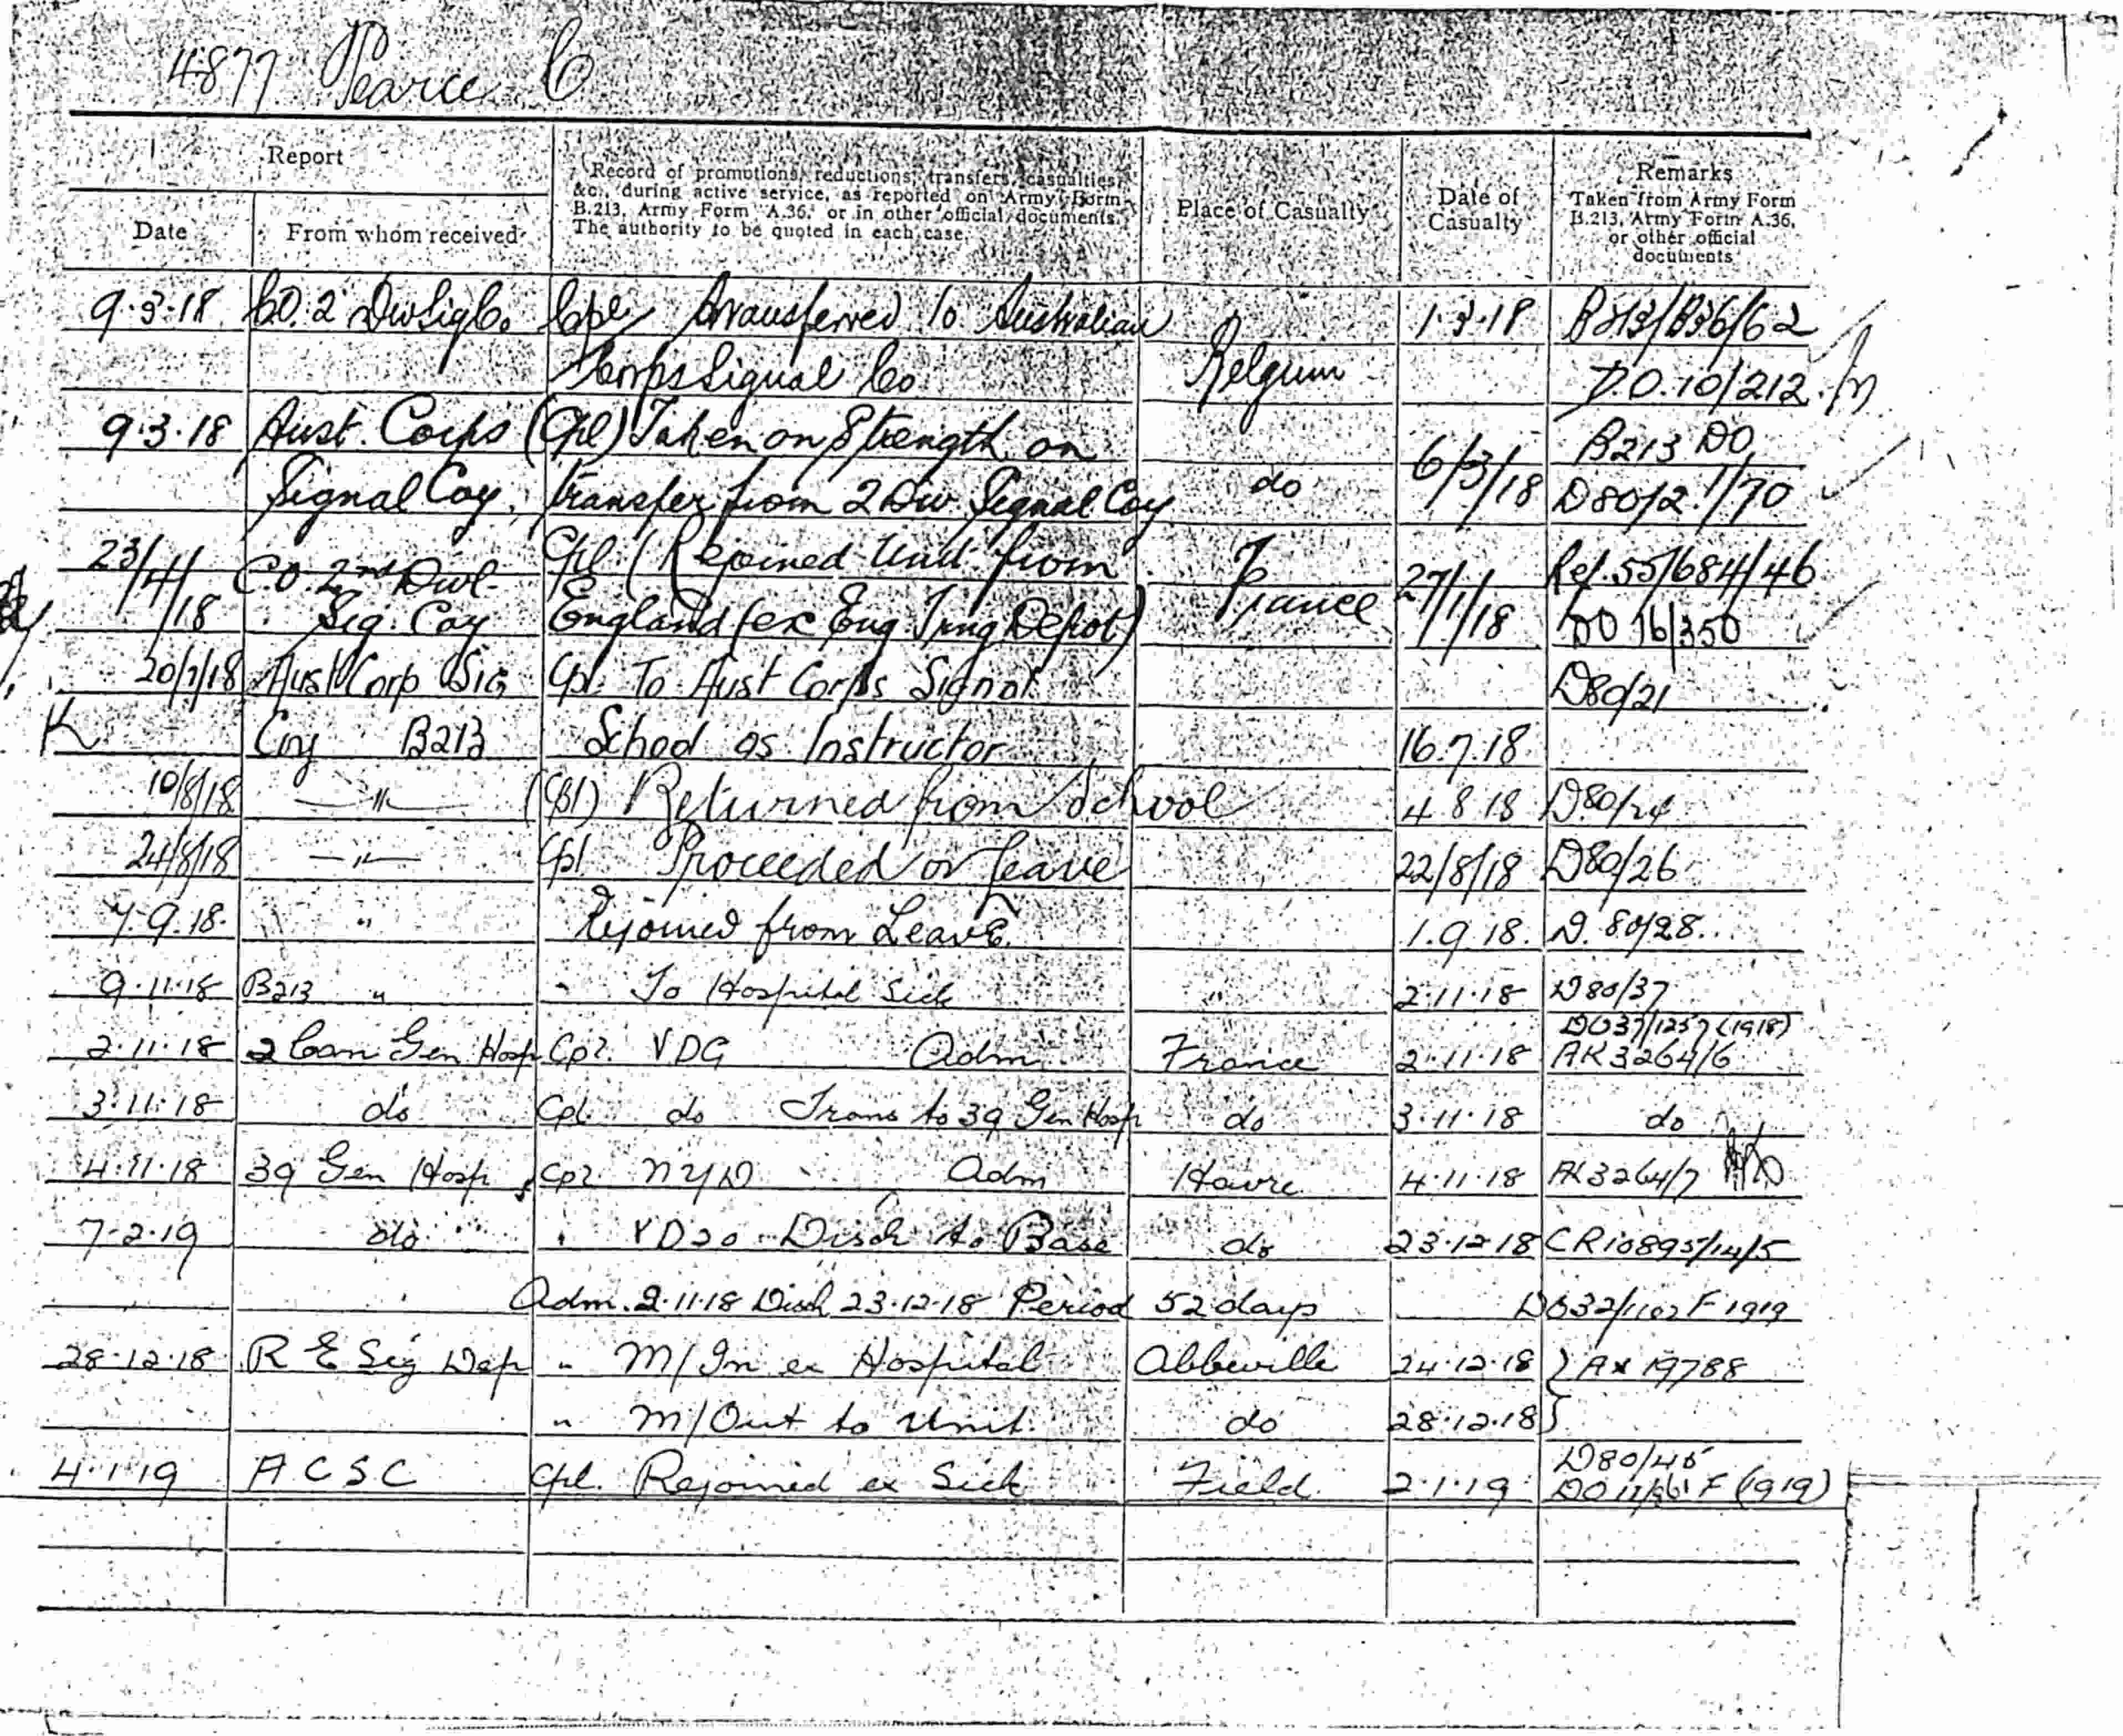 4877 Pearce C
Report
Record of promotions, reductions, transfers, casualties,
&c., during active service, as reported on Army Form
B.213, Army Form A.36, or in other official documents.
The authority to be quoted in each case.
Place of Casualty
Date of
Casualty
Remarks
Taken from Army Form
B.213, Army Form A.36,
or other official
documents
Date From whom received
9.3.18 CO. 2 Div Sig Co. Cpl Transferred to Australian 1.3.18 B213/B36/62
Corps Signal Co Belgium D.O. 10/212.
9.3.18 Aust. Corps (Cpl) Taken on Strength on B213 DO
Signal Coy, transfer from 2 Div Signal Coy do 6/3/18 D80/2 1/70
23/4/18 C.O. 2nd Divl Cpl (Rejoined Unit from France 27/1/18 Ref. 55/684/46
Sig. Coy England (ex Eng. Trng Depot) DO 16/350
20/7/18 Aust Corp Sig Cpl To Aust Corps Signal D80/21
K Coy B213 School as Instructor 16.7.18
10/8/18 —"— (Cpl) Returned from School 4 8 18 D80/24
24/8/18 —"— Cpl Proceeded on leave 22/8/18 D80/26
7.9.18 " Rejoined from Leave 1.9.18. D.80/28.
9.11.18 B213 " " To Hospital Sick 2.11.18 D80/37
DO37/1257 (1918)
2.11.18 2 Can Gen Hosp Cpl. VDG Adm France 2.11.18 AK3264/6
3.11.18 do Cpl do Trans to 39 Gen Hosp do 3.11.18 do
4.11.18 39 Gen Hosp Cpl NYD Adm Havre 4.11.18 AK3264/7
7.2.19 do " VD20 Disch to Base do 23.12.18 CR10895/14/5
Adm. 2.11.18 Disch 23.12.18 Period 52 days DO32/1102 F 1919
28.12.18 R E Sig Dep " M/In ex Hospital Abbeville 24.12.18 } AX 19788
" M/Out to Unit. do 28.12.18 }
D80/45
4.1.19 A C S C Cpl. Rejoined ex Sick Field 2.1.19 DO 11/361 F (1919)